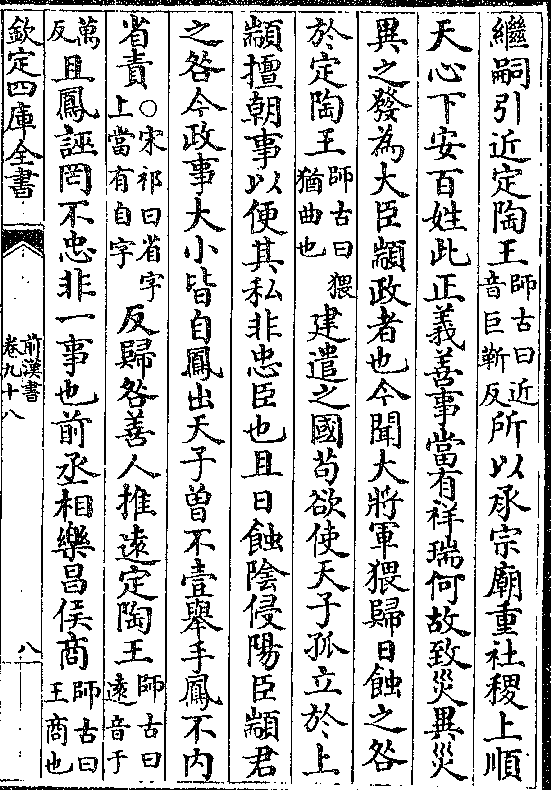 繼嗣引近定陶王師古曰近音巨靳反所以承宗廟重社稷上順
天心下安百姓此正義善事當有祥瑞何故致災異災
異之發為大臣顓政者也今聞大將軍猥歸日蝕之咎
於定陶王師古曰猥猶曲也建遣之國苟欲使天子孤立於上
顓擅朝事以便其私非忠臣也且日蝕陰侵陽臣顓君
之咎今政事大小皆自鳳出天子曾不壹舉手鳳不内
省責○宋祁曰省字上當有自字反歸咎善人推遠定陶王師古曰遠音于
萬反且鳳誣罔不忠非一事也前丞相樂昌侯商師古曰王商也
欽定四庫全書
前漢書
卷九十八
八